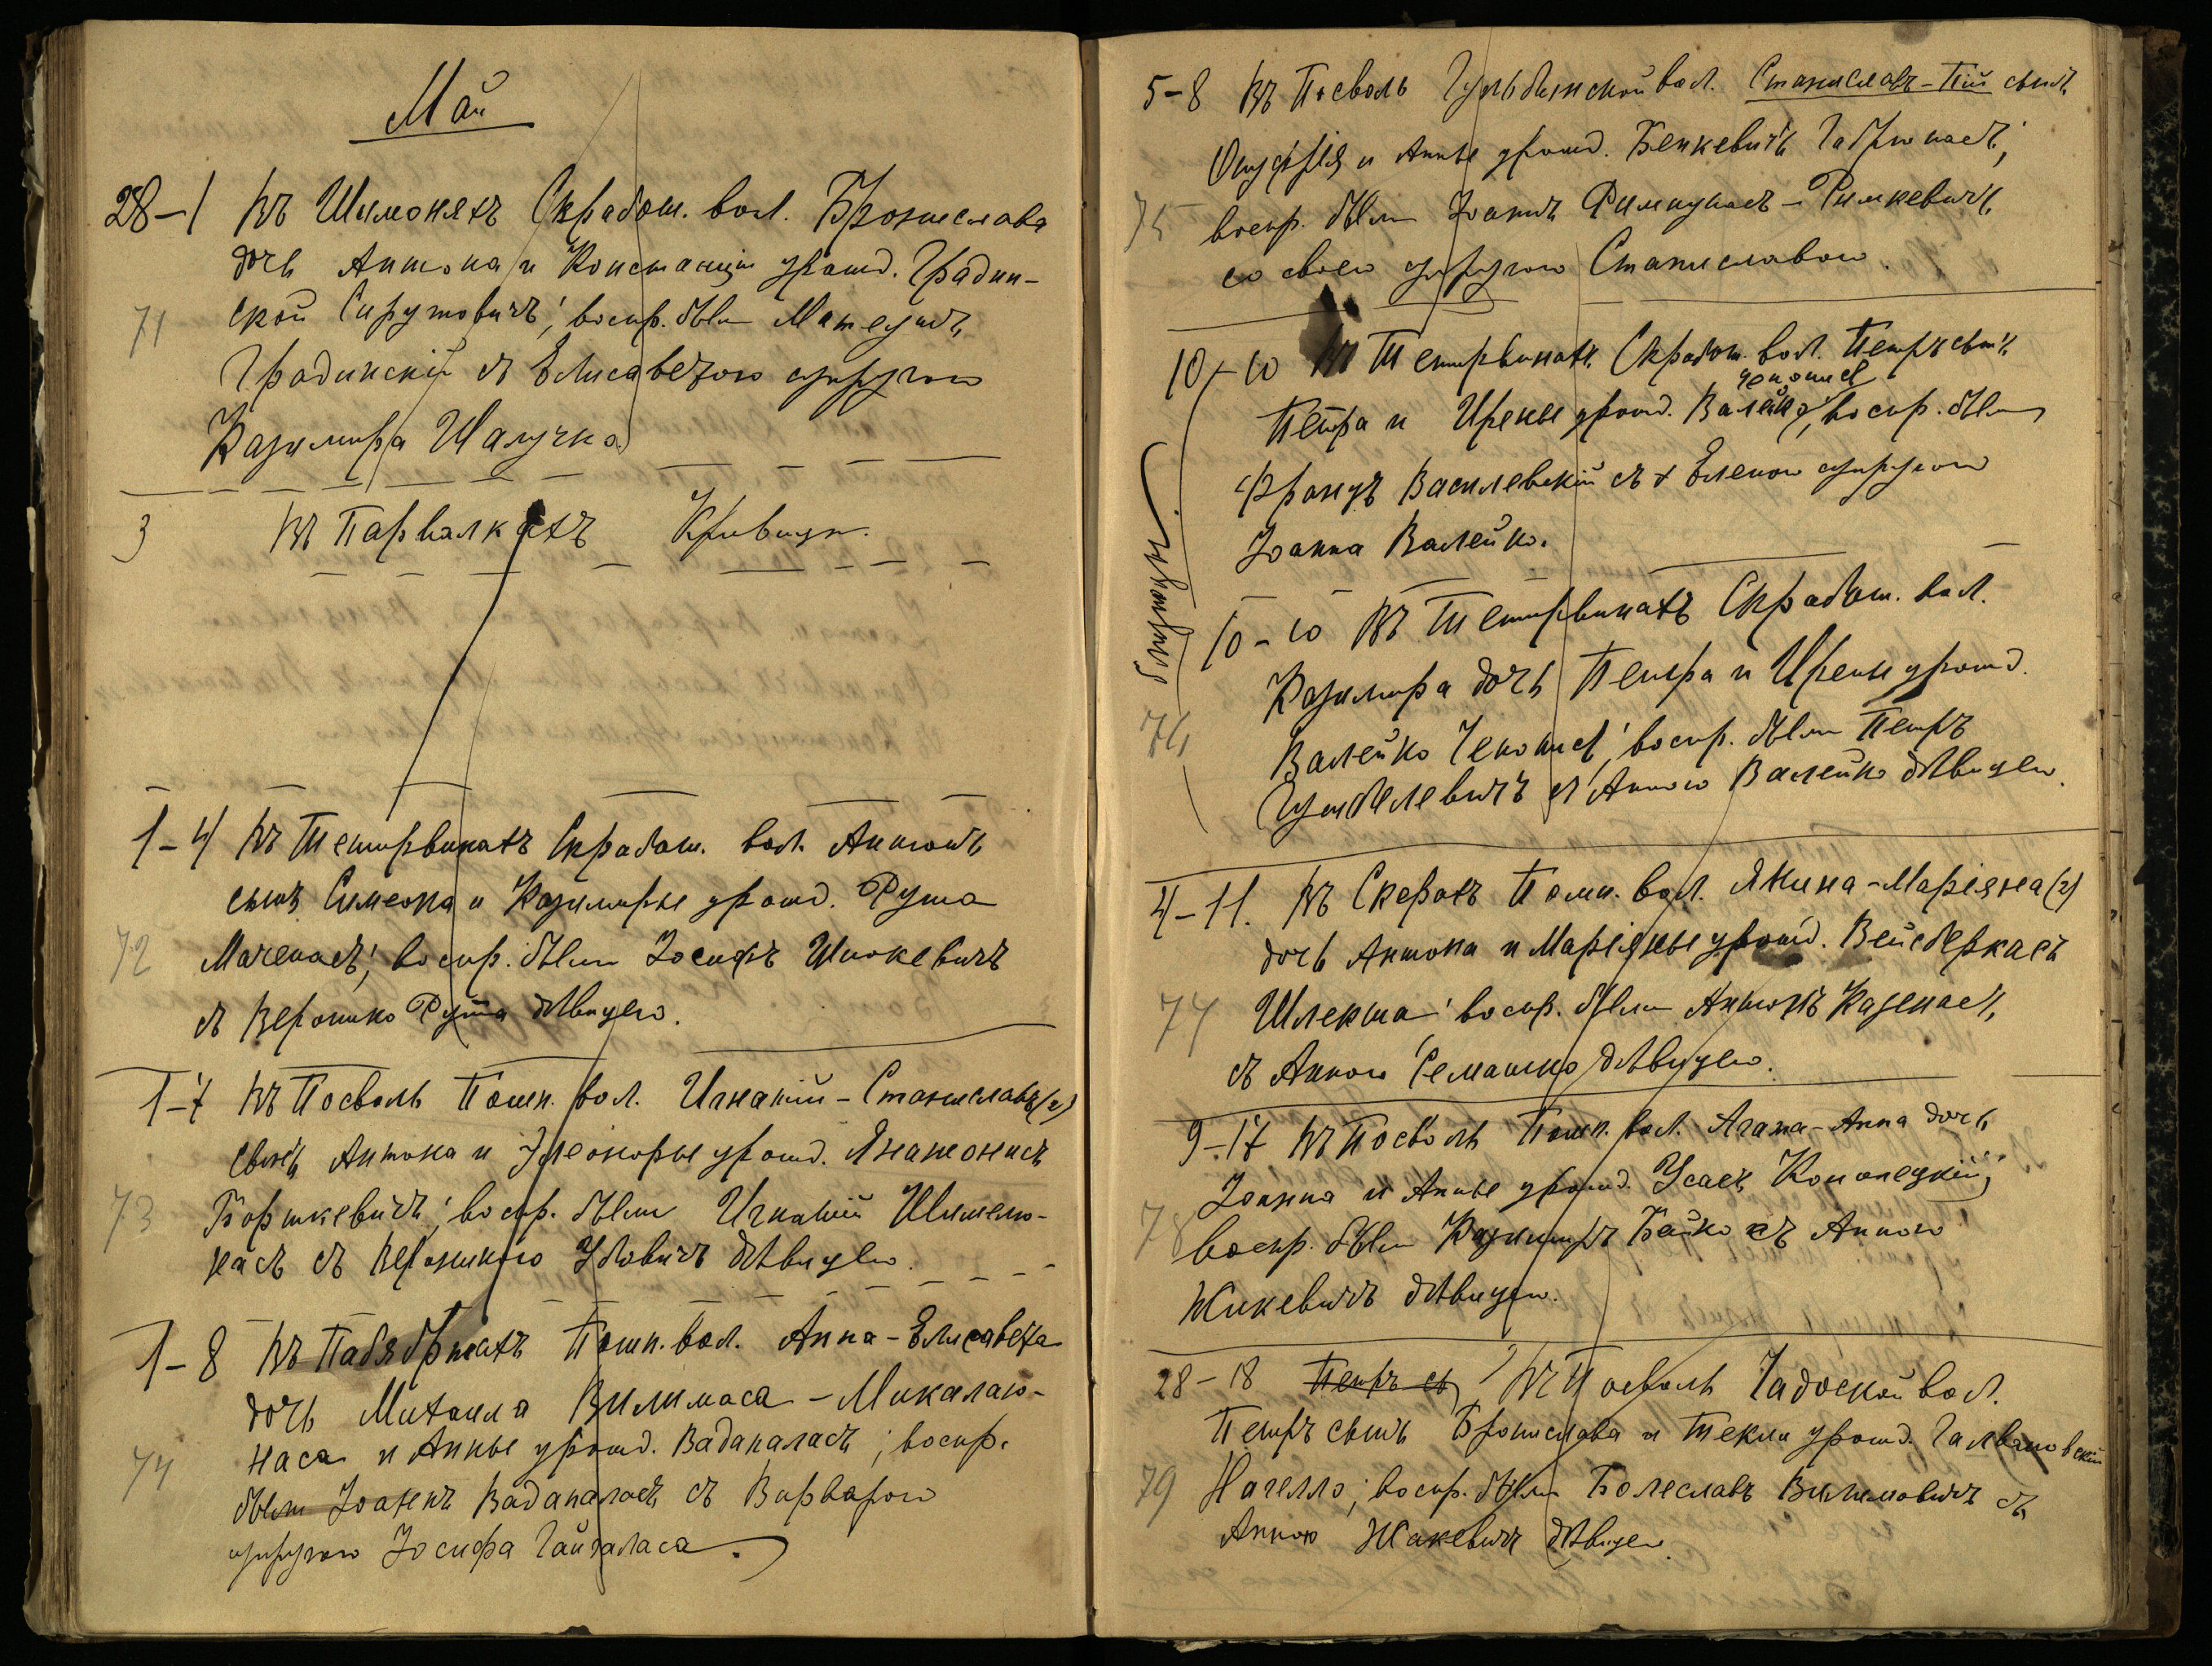 Май
28-1 Въ Шимоняхъ Скработ. вол. Бронислава
дочь Антона и Констанціи урожд. Градин-
71 ской Сирутовичъ; воспр. были Матеушъ
Градинскій съ Елисаветою супругою
Казимира Шалучка
3 Въ Парвалкахъ Кривицк.
1-4 Въ Тетирвинахъ Скработ. вол. Антонъ
сынъ Симеона и Казимиры урожд. Рута
72 Маченасъ; воспр. были Іосифъ Шнокевичъ
съ Веронико Рутта дѣвицею.
1-7 Въ Посволь Пошп. вол. Игнатій-Станиславъ (2)
сынъ Антона и Элеоноры урожд. Янанонисъ
73 Борткевичъ; воспр. были Игнатій Шимелю-
насъ съ Вероникою Убовичъ дѣвицею.
1-8 Въ Пабядрнахъ Пошп. вол. Анна-Елисавета
дочь Михаила Вилимаса-Микалаю-
наса и Анны урожд. Вадапаласъ; воспр.
74 были Іоанъ Вадапаласъ съ Варварою
супругою Іосифа Гайгаласа.
5-8 Въ Посволь Гульбинской вол. Станиславъ-Пій сынъ
Онуфрія и Анны урожд. Бенкевичъ Габрюнасъ;
75 воспр. были Іоанъ Римкунасъ-Римкевичъ
со своею супругою Станиславою.
10-10 Въ Тетирвинахъ Скработ. вол. Петръ сынъ
Чепонисъ
Петра и Ирены урожд. Валейко; воспр. были
Францъ Василевскій съ Еленою супругою
Іоанна Валейко.
близнецы
10-10 Въ Тетирвинахъ Скработ. вол.
Казимира дочь Петра и Ирены урожд.
76 Валейко Чепонисъ; воспр. были Петръ
Гумбелевичъ съ Анною Валейко дѣвицею.
4-11. Въ Скерахъ Помп. вол. Янина-Маріянна (2)
дочь Антона и Маріянны урожд. Вейсберкасъ
77 Шлекта; воспр. были Антонъ Казенасъ,
съ Анною Семашко дѣвицею.
9-17 Въ Посволь Пошп. вол. Агата-Анна дочь
Іоанна и Анны урожд. Усасъ Конопецкій;
78 воспр. были Казимиръ Байко съ Анною
Жикевичъ дѣвицею.
28-18 Петръ съ Въ Посволь Гадоской вол.
Петръ сынъ Бронислава и Текли урожд. Галвановской
79 Нагелло; воспр. были Болеславъ Вилимовичъ съ
Анною Жакевичъ дѣвицею.